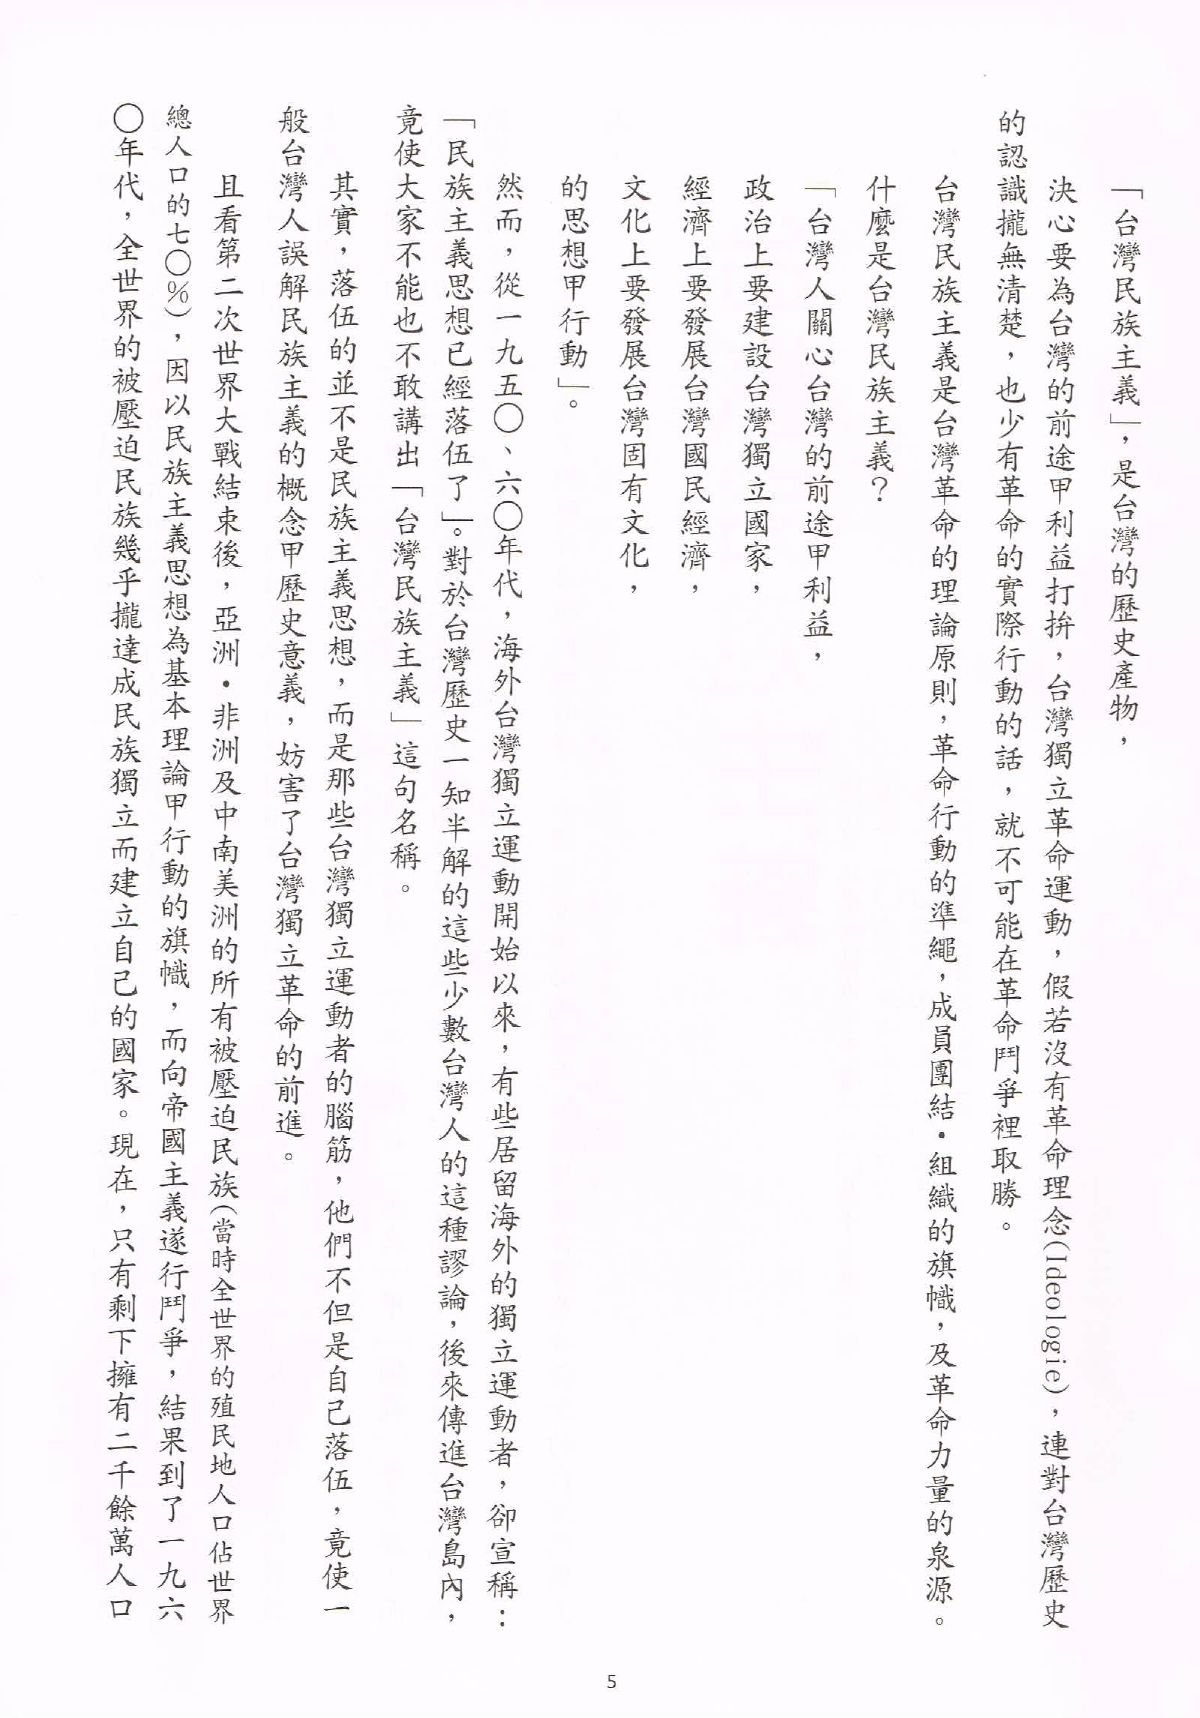 「台灣民族主義」，是台灣的歷史產物，
決心要為台灣的前途甲利益打拚，台灣獨立革命運動，假若沒有革命理念(Ideologie)，連對台灣歷史
的認識攏無清楚，也少有革命的實際行動的話，就不可能在革命鬥爭裡取勝。
台灣民族主義是台灣革命的理論原則，革命行動的準繩，成員團結・組織的旗幟，及革命力量的泉源。
什麼是台灣民族主義？
「台灣人關心台灣的前途甲利益，
政治上要建設台灣獨立國家，
經濟上要發展台灣國民經濟，
文化上要發展台灣固有文化，
的思想甲行動」。
然而，從一九五〇、六〇年代，海外台灣獨立運動開始以來，有些居留海外的獨立運動者，卻宣稱：
「民族主義思想已經落伍了」。對於台灣歷史一知半解的這些少數台灣人的這種謬論，後來傳進台灣島內，
竟使大家不能也不敢講出「台灣民族主義」這句名稱。
其實，落伍的並不是民族主義思想，而是那些台灣獨立運動者的腦筋，他們不但是自己落伍，竟使一
般台灣人誤解民族主義的概念甲歷史意義，妨害了台灣獨立革命的前進。
且看第二次世界大戰結束後，亞洲・非洲及中南美洲的所有被壓迫民族(當時全世界的殖民地人口佔世界
總人口的七〇％)，因以民族主義思想為基本理論甲行動的旗幟，而向帝國主義遂行鬥爭，結果到了一九六
〇年代，全世界的被壓迫民族幾乎攏達成民族獨立而建立自己的國家。現在，只有剩下擁有二千餘萬人口
5